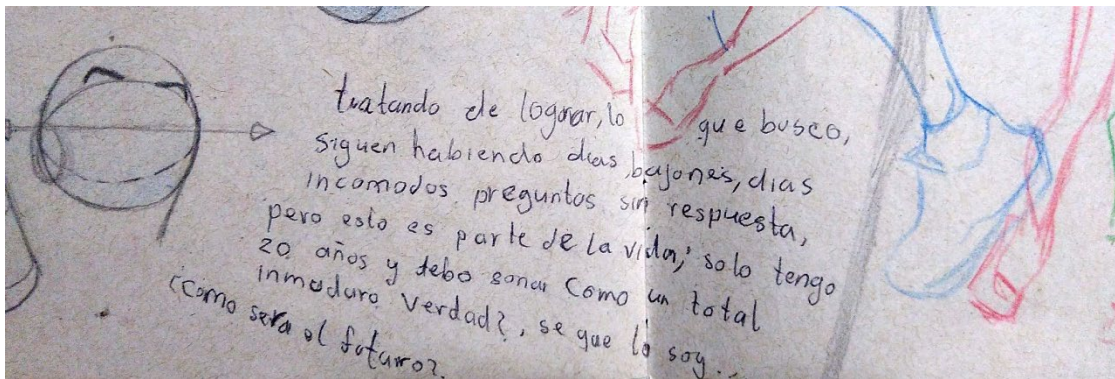 tratando de lograr, lo que busco,
siguen habiendo dias bajones, dias
incomodos preguntos sin respuesta,
pero esto es parte de la vida, solo tengo
20 años y debo sonar como un total
inmaduro verdad?, se que lo soy...
¿Como sera el futuro?